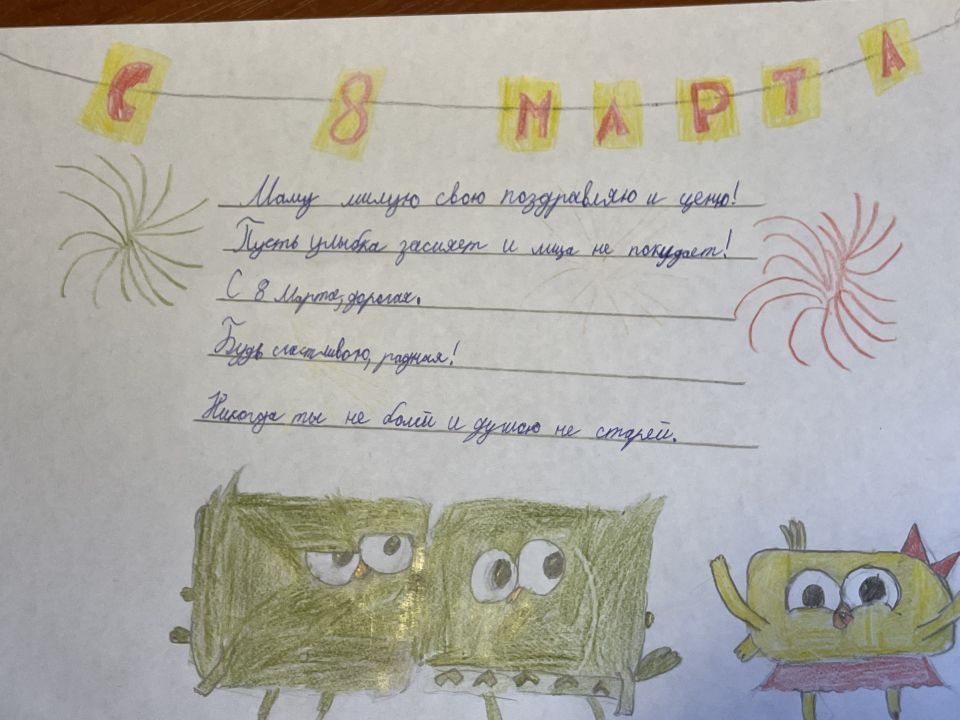 С 8 МАРТА
Маму милую свою поздравляю и ценю!
Пусть улыбка засияет и лица не покидает!
С 8 Марта, дорогая.
Будь счастливою, родная!
Никогда ты не болей и душою не старей.